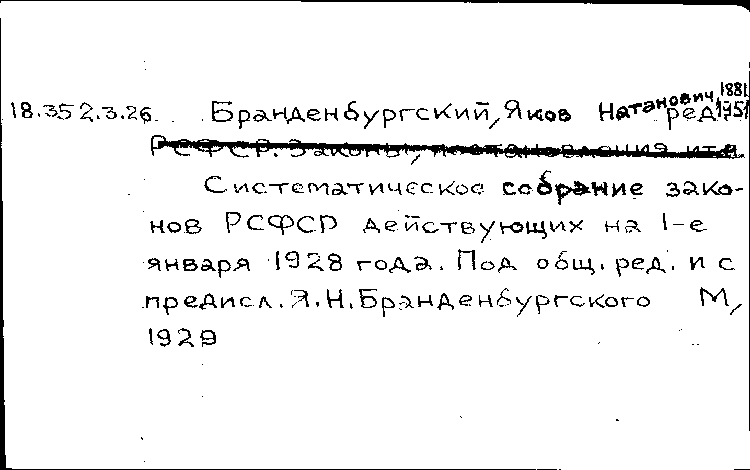 18.352.3.26. Бранденбургский, Яков Натанович, ред. 1881 1951
РСФСР. Законы, постановления ит.п.
Систематическое собрание зако-
нов РСФСР действующих на 1-е
января 1928 года. Под общ. ред. и с
предисл. Я.Н. Бранденбургского М,
1929